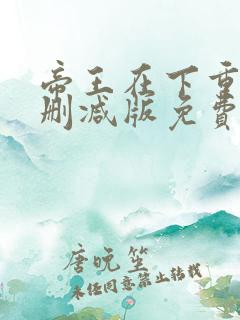 帝王在下重
删减版免費
唐晚笙
未经同意禁止转载